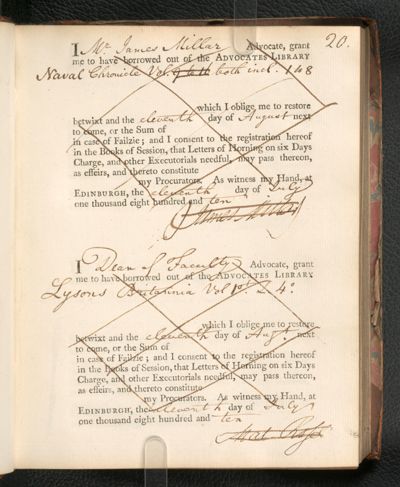 20.
I Mr. James Millar Advocate, grant
me to have borrowed out of the ADVOCATES LIBRARY
Naval Chronicle Vol. 9 to 11 both incl. 148
which I oblige me to restore
betwixt and the eleventh day of August next
to come, or the Sum of
in case of Failzie; and I consent to the registration hereof
in the Books of Session, that Letters of Horning on six Days
Charge, and other Executorials needful, may pass thereon,
as effeirs, and thereto constitute
my Procurators. As witness my Hand, at
EDINBURGH, the eleventh day of July
one thousand eight hundred and ten
James Millar
I Dean of Faculty Advocate, grant
me to have borrowed out of the ADVOCATES LIBRARY
Lysons Britannia Vol 1st. 2. 4o.
which I oblige me to restore
betwixt and the eleventh day of Augt. next
to come, or the Sum of
in case of Failzie; and I consent to the registration hereof
in the Books of Session, that Letters of Horning on six Days
Charge, and other Executorials needful, may pass thereon,
as effeirs, and thereto constitute
my Procurators. As witness my Hand, at
EDINBURGH, the eleventh day of July
one thousand eight hundred and ten
Mat. Ross